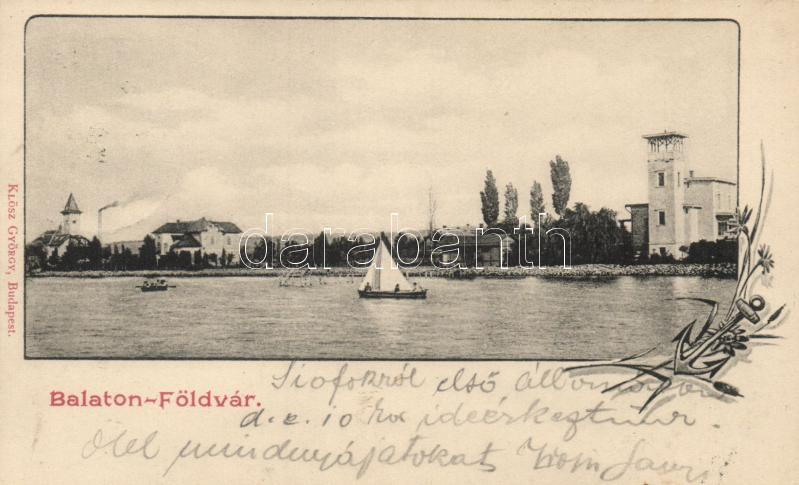 KLÖSZ GYÖRGY, Budapest.
darabanth
Balaton-Földvár.
Siófokról első
d.e. 10 ideérkeztünk.
Ölel mindnyájatokat